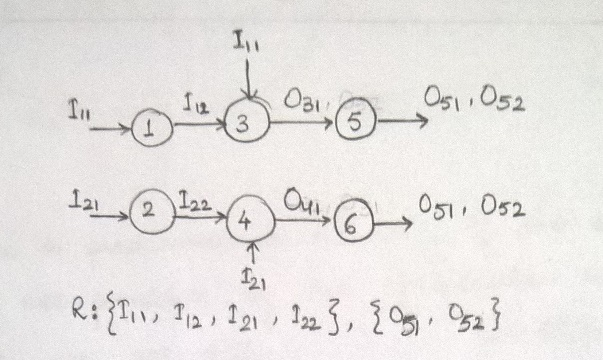 I₁₁
I₁₁ 1 I₁₂ 3 O₃₁ 5 O₅₁, O₅₂
I₂₁ 2 I₂₂ 4 O₄₁ 6 O₅₁, O₅₂
I₂₁
R: {I₁₁, I₁₂, I₂₁, I₂₂}, {O₅₁, O₅₂}